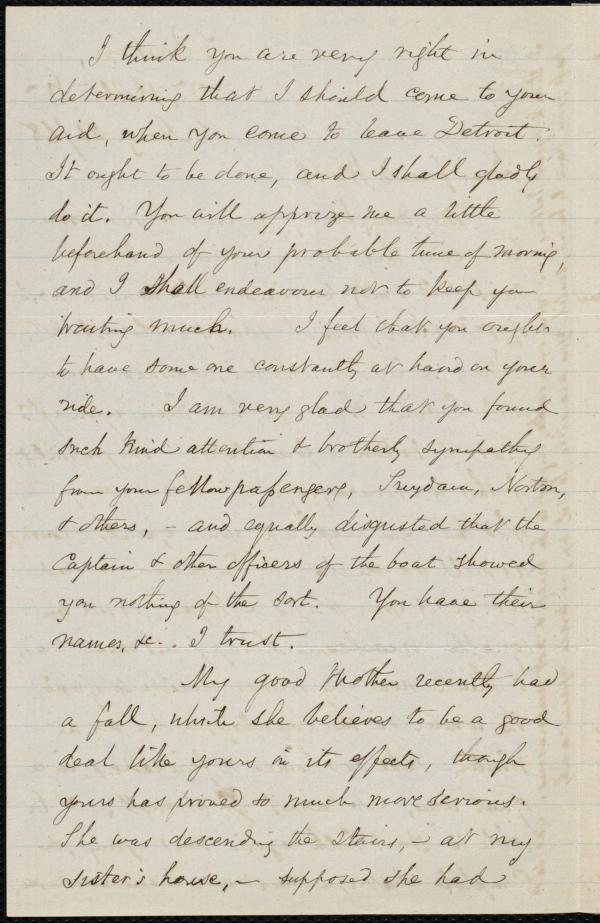 I think you are very right in
determining that I should come to your
aid, when you come to leave Detroit.
It ought to be done, and I shall gladly
do it. You will apprize me a little
beforehand of your probable time of moving,
and I shall endeavour not to keep you
waiting much. I feel that you ought
to have some one constantly at hand on your
ride. I am very glad that you found
such kind attention & brotherly sympathy
from your fellow passengers, Suydam, Norton,
& others, - and equally disgusted that the
Captain & other officers of the boat showed
you nothing of the sort. You have their
names, &c. I trust.
My good Mother recently had
a fall, which she believes to be a good
deal like yours in its effects, though
yours has proved so much more serious.
She was descending the stairs, - at my
sister's house, - supposed she had